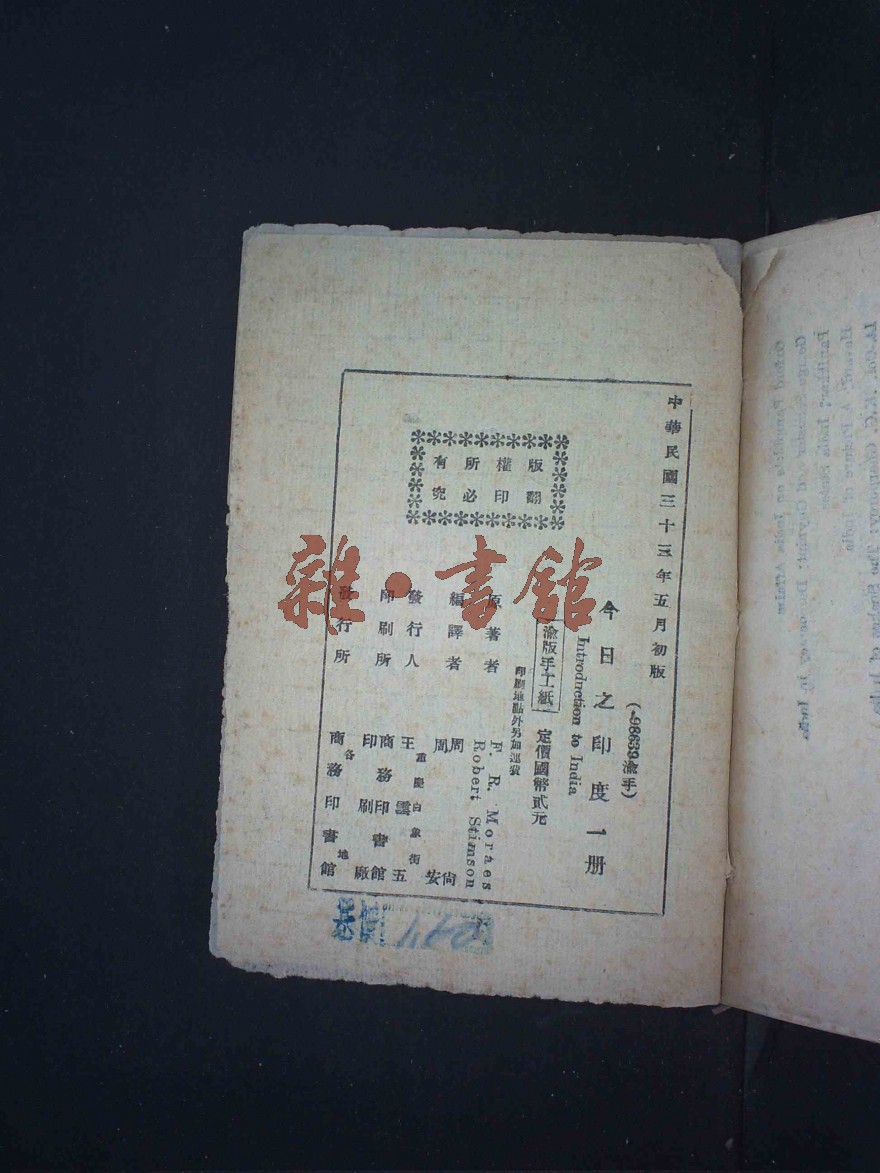 中華民國三十三年五月初版
(98639渝手)
今日之印度一册
Introduction to India
渝版手工紙 定價國幣貳元
印刷地點外另加運費
原著者 F. R. Moraes
Robert Stimson
編譯者 周尙
周安
發行人 王雲五
重慶白象街
印刷所 商務印書館
印刷廠
發行所 各地
商務印書館
版權所有
翻印必究
雜·書館